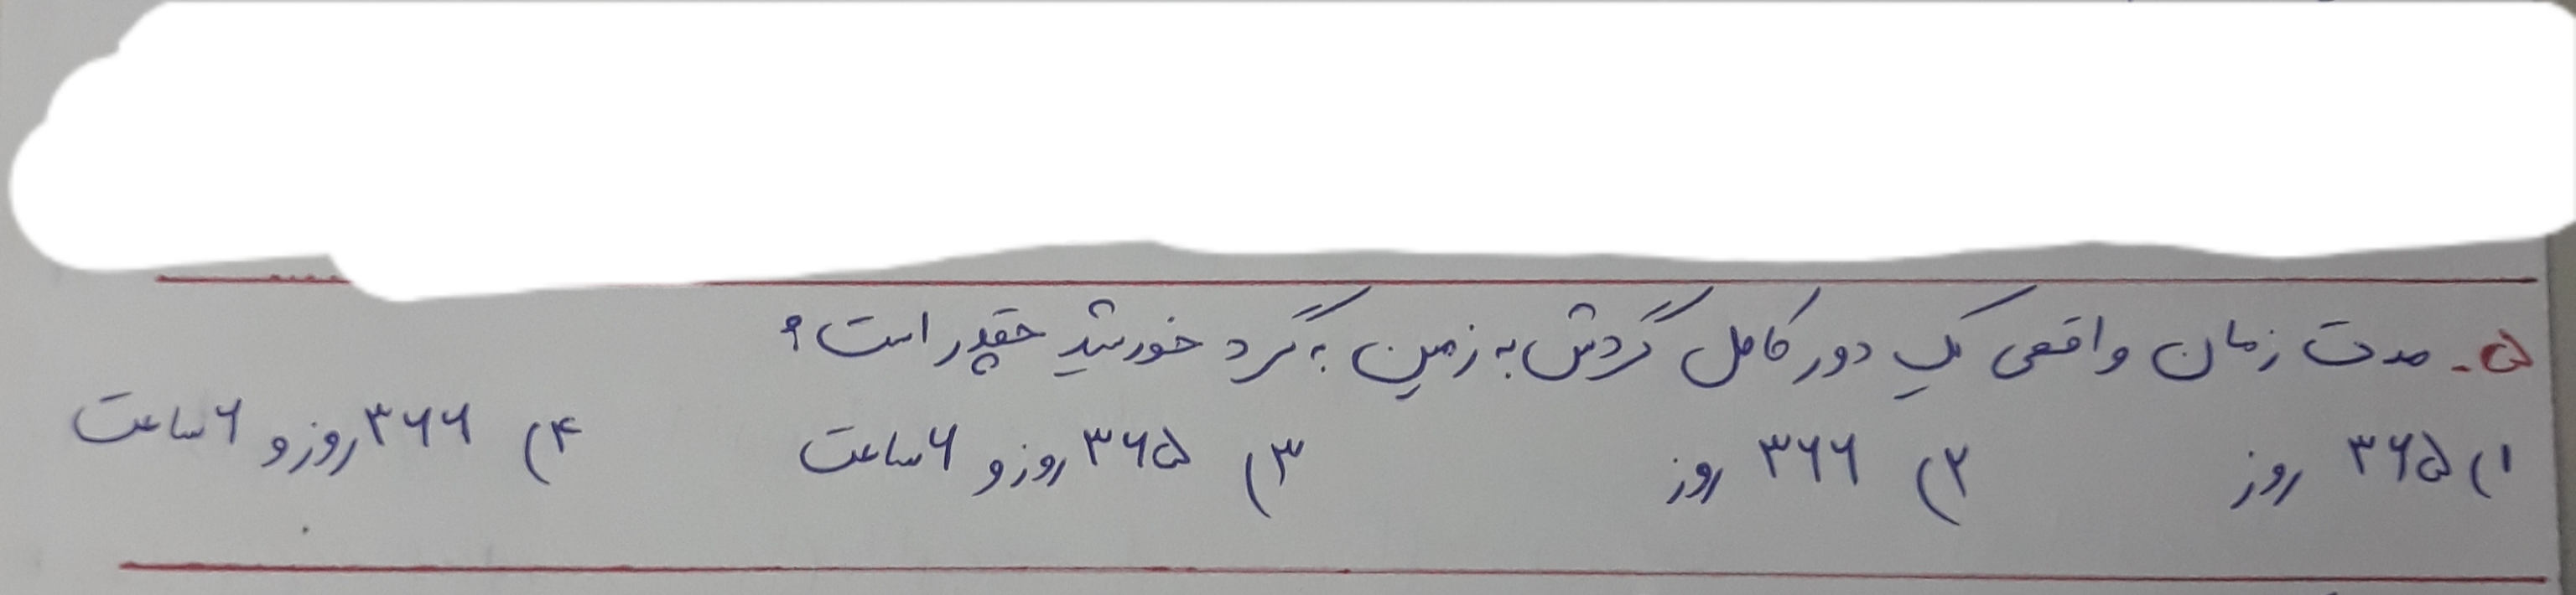 ۵- مدت زمان واقعی یک دور کامل گردش به زمین به گرد خورشید چقدر است؟
۱) ۳۶۵ روز ۲) ۳۶۶ روز ۳) ۳۶۵ روز و ۶ ساعت ۴) ۳۶۶ روز و ۶ ساعت